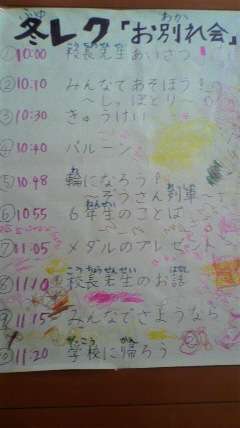 冬レク「お別れ会」
①10:00 校長先生あいさつ
②10:10 みんなであそぼう!
～しっぽとり～
③10:30 きゅうけい
④10:40 バルーン
⑤10:48 輪になろう!
～ぞうさん列車～
⑥10:55 6年生のことば
⑦11:05 メダルのプレゼント
⑧11:10 校長先生のお話
⑨11:15 みんなでさようなら
⑩11:20 学校に帰ろう